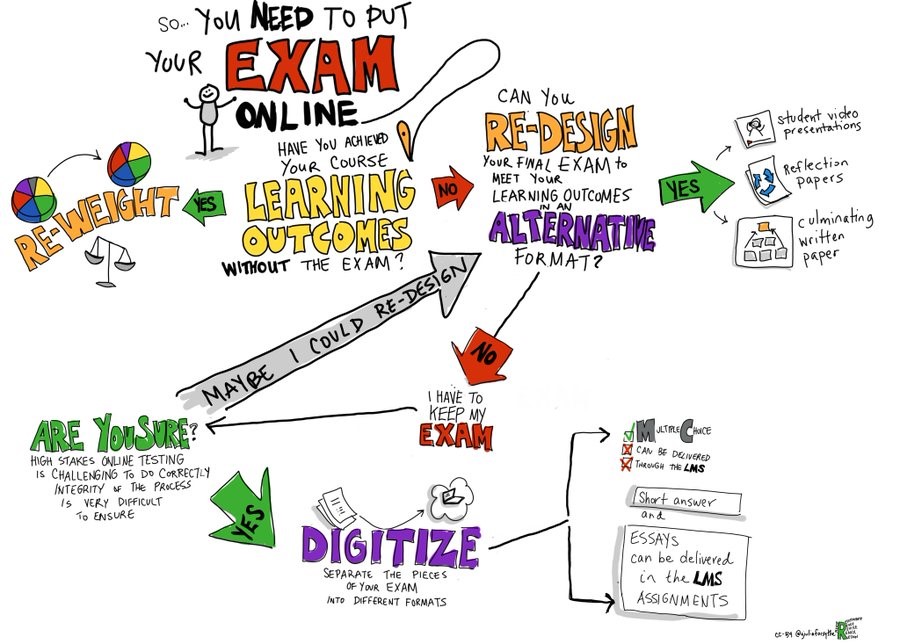 SO... YOU NEED TO PUT
YOUR EXAM
ONLINE
HAVE YOU ACHIEVED
YOUR COURSE
LEARNING
OUTCOMES
WITHOUT THE EXAM?
YES
RE-WEIGHT
NO
CAN YOU
RE-DESIGN
YOUR FINAL EXAM to
MEET YOUR
LEARNING OUTCOMES
IN AN
ALTERNATIVE
FORMAT?
YES
student video
presentations
Reflection
papers
culminating
written
paper
NO
I HAVE TO
KEEP MY
EXAM
MAYBE I COULD RE-DESIGN
ARE YOU SURE?
HIGH STAKES ONLINE TESTING
IS CHALLENGING TO DO CORRECTLY
INTEGRITY OF THE PROCESS
IS VERY DIFFICULT
TO ENSURE
YES
DIGITIZE
SEPARATE THE PIECES
OF YOUR EXAM
INTO DIFFERENT FORMATS
MULTIPLE CHOICE
CAN BE DELIVERED
THROUGH THE LMS
Short answer
and
ESSAYS
can be delivered
in the LMS
ASSIGNMENTS
CC-BY @giuliaforsythe